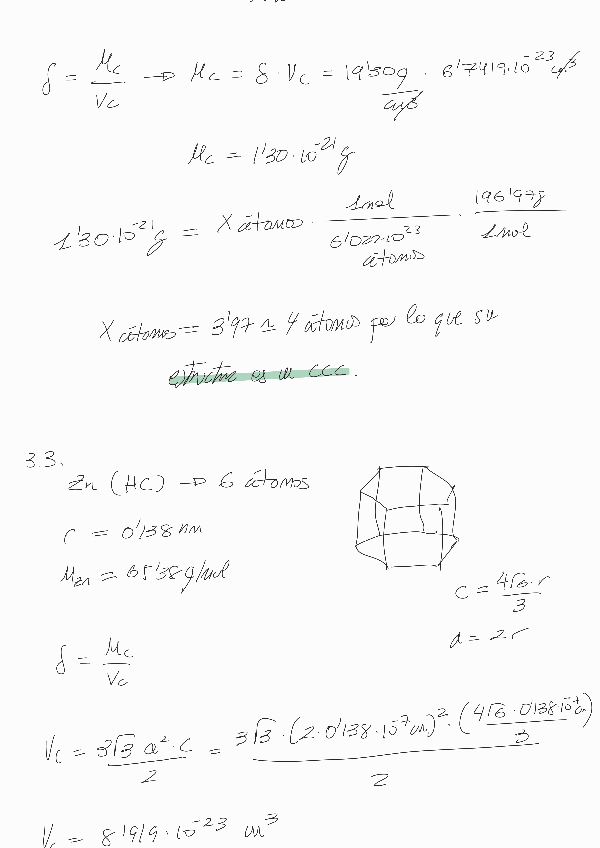 δ = Mc/Vc → Mc = δ · Vc = 19'30g/cm3 · 6'7419·10^-23 cm3
Mc = 1'30·10^-21 g
1'30·10^-21 g = X átomos · 1mol/6'022·10^23 átomos · 196'97g/1mol
X átomos = 3'97 ≃ 4 átomos por lo que su
estructura es un CCC.
3.3.
Zn (HC) → 6 átomos
r = 0'138 nm
Mzn = 65'38 g/mol
c = 4√6·r/3
a = 2r
δ = Mc/Vc
Vc = 3√3 a^2·c/2 = 3√3·(2·0'138·10^-7cm)^2·(4√6·0'138·10^-7cm/3)/2
Vc = 8'919·10^-23 cm^3